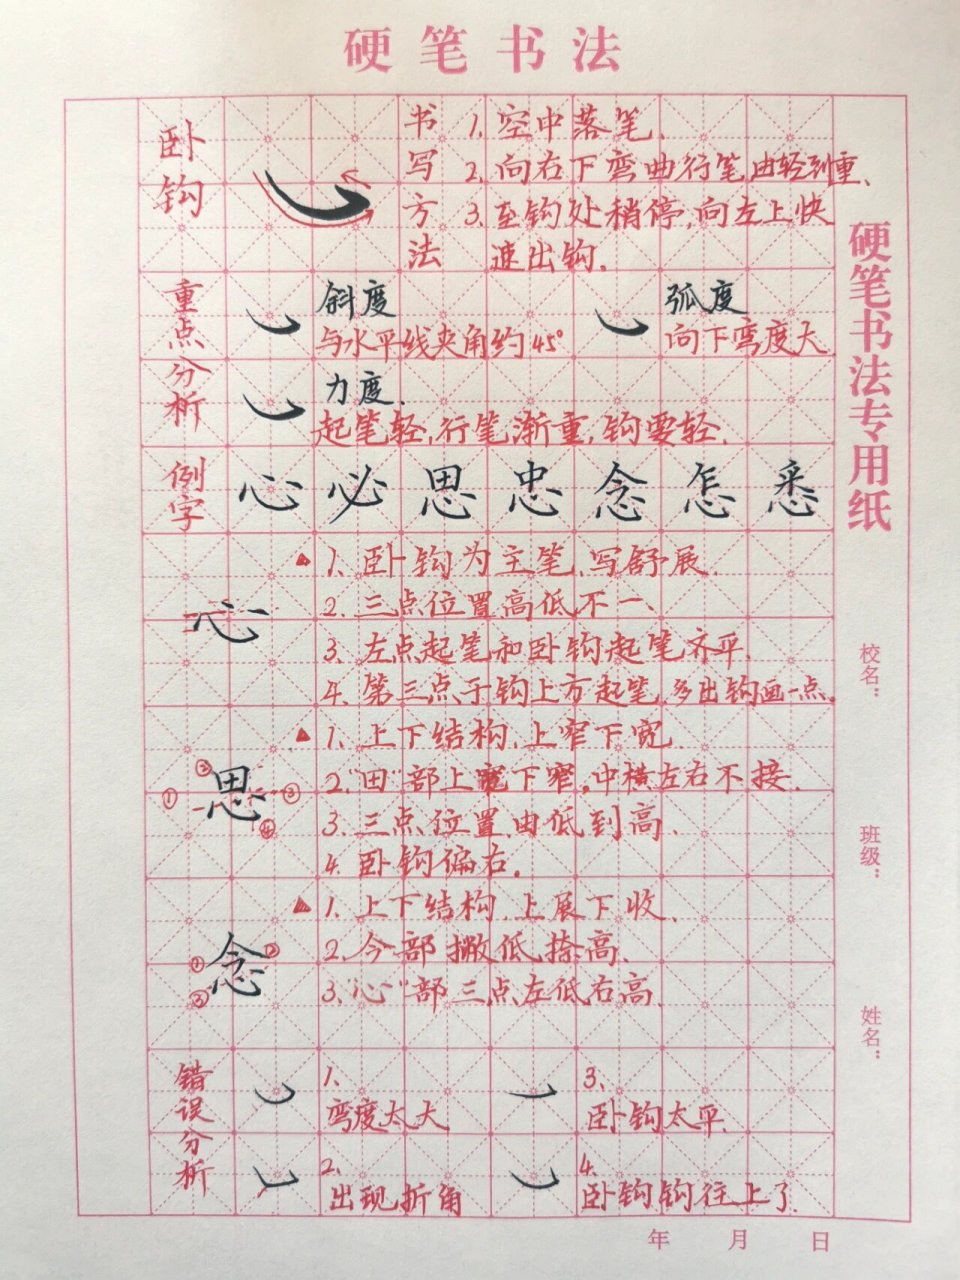 硬笔书法
卧钩
书写方法
1. 空中落笔.
2. 向右下弯曲行笔由轻到重、
3. 至钩处稍停,向左上快
速出钩.
重点分析
斜度
与水平线夹角约45°
弧度
向下弯度大
力度.
起笔轻,行笔渐重,钩要轻.
例字
心必思忠念怎悉
心
1、卧钩为主笔、写舒展.
2. 三点位置高低不一、
3、左点起笔和卧钩起笔齐平.
4. 第三点于钩上方起笔,多出钩画一点.
思
① ② ③ ④
1、上下结构、上窄下宽.
2."田"部上宽下窄,中横左右不接.
3、三点位置由低到高.
4. 卧钩偏右.
念
① ② ③
1、上下结构、上展下收、
2、今部撇低捺高.
3."心"部三点左低右高.
错误分析
1、
弯度太大
3、
卧钩太平.
2.
出现折角
4.
卧钩钩往上了
硬笔书法专用纸
校名:
班级:
姓名:
年 月 日